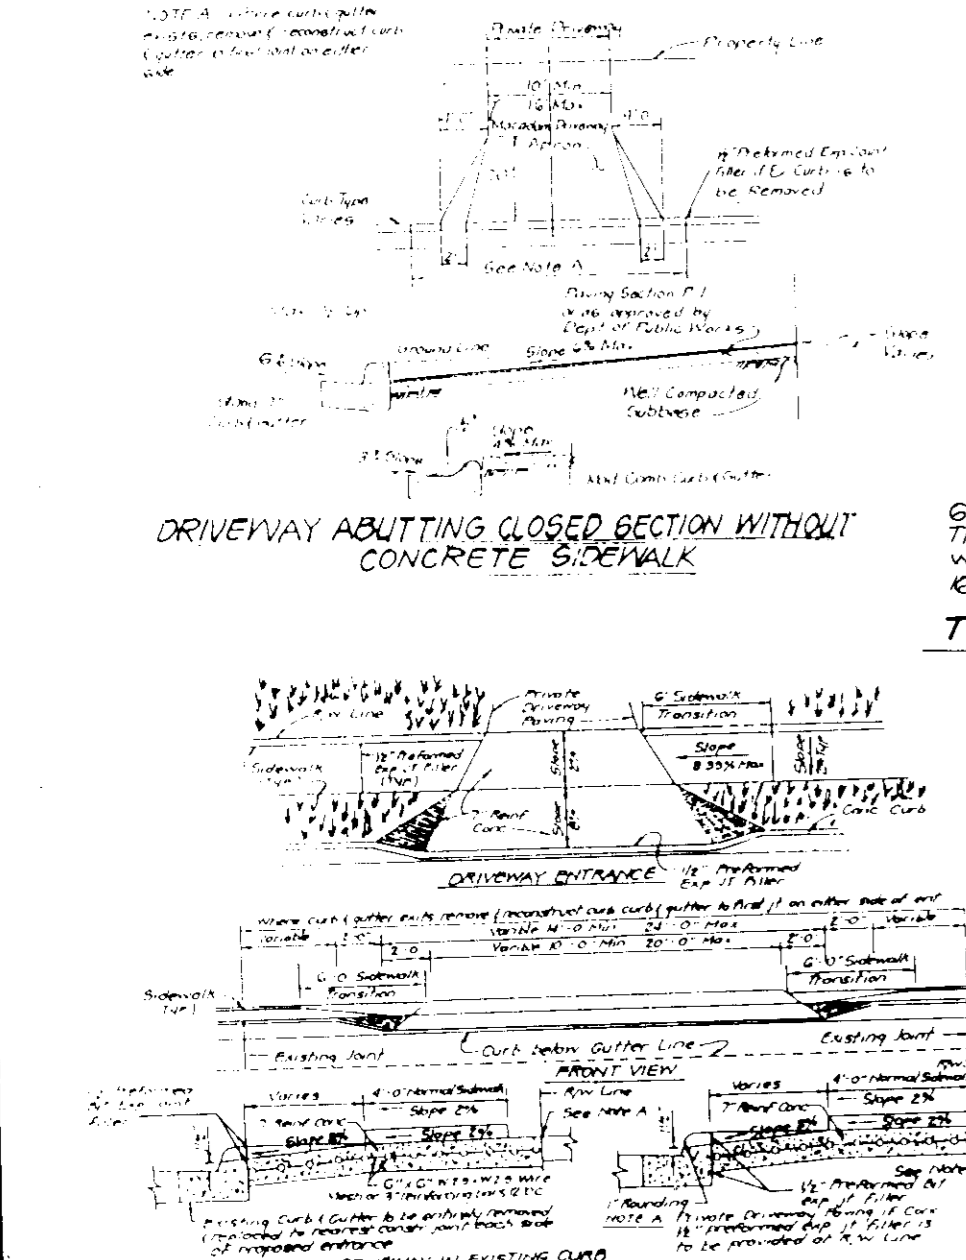 NOTE A Where curb & gutter
exists, remove & reconstruct curb
& gutter to first joint on either
side
Private Driveway
Property Line
10' Min
16' Max
4'-0
Macadam Driveway
Apron
½" Preformed Exp Joint
Filler if Ex Curb is to
be Removed
Curb Type
Varies
2'
2'
See Note A
Paving Section P-1
or as approved by
Dept of Public Works
Ground Line
Slope 6% Max
Slope
Varies
Slope
Curb & Gutter
Well Compacted
Subbase
Slope
4% Max
Slope
Mod Comb Curb & Gutter
DRIVEWAY ABUTTING CLOSED SECTION WITHOUT
CONCRETE SIDEWALK
Private
Driveway
Paving
6' Sidewalk
Transition
R/W Line
Sidewalk
(Typ)
½" Preformed
Exp JT Filler
(TYP)
Slope
2%
Slope
8.33% Max
Slope
Typ
7" Reinf
Conc
Slope
8%
Conc Curb
DRIVEWAY ENTRANCE
1/2" Preformed
Exp JT Filler
Where curb & gutter exits remove & reconstruct curb curb & gutter to first jt on either side of ent
Variable
2'-0"
Variable 14'-0 Min 24'-0" Max
2'-0"
Variable
2'-0
Variable 10'-0" Min 20'-0" Max
2'-0"
6'-0 Sidewalk
Transition
6'-0" Sidewalk
Transition
Sidewalk
Typ)
Existing Joint
Curb below Gutter Line
Existing Joint
FRONT VIEW
Preformed
Filler
Varies
4'-0" Normal Sidewalk
Slope 2%
7" Reinf Conc
Slope 8%
Slope 2%
R/W Line
See Note A
6" x 6" W2.9 x W2.9 Wire
Existing Curb & Gutter to be entirely removed
& replaced to nearest constr joint each side
of proposed entrance
Varies
4'-0" Normal Sidewalk
Slope 2%
7" Reinf Conc
Slope 8%
Slope 2%
See Note
1" Rounding
½" Preformed Bit
exp jt filler
NOTE A Private Driveway Paving if Conc
½" preformed exp jt filler is
to be provided at R/W Line
IN EXISTING CURB